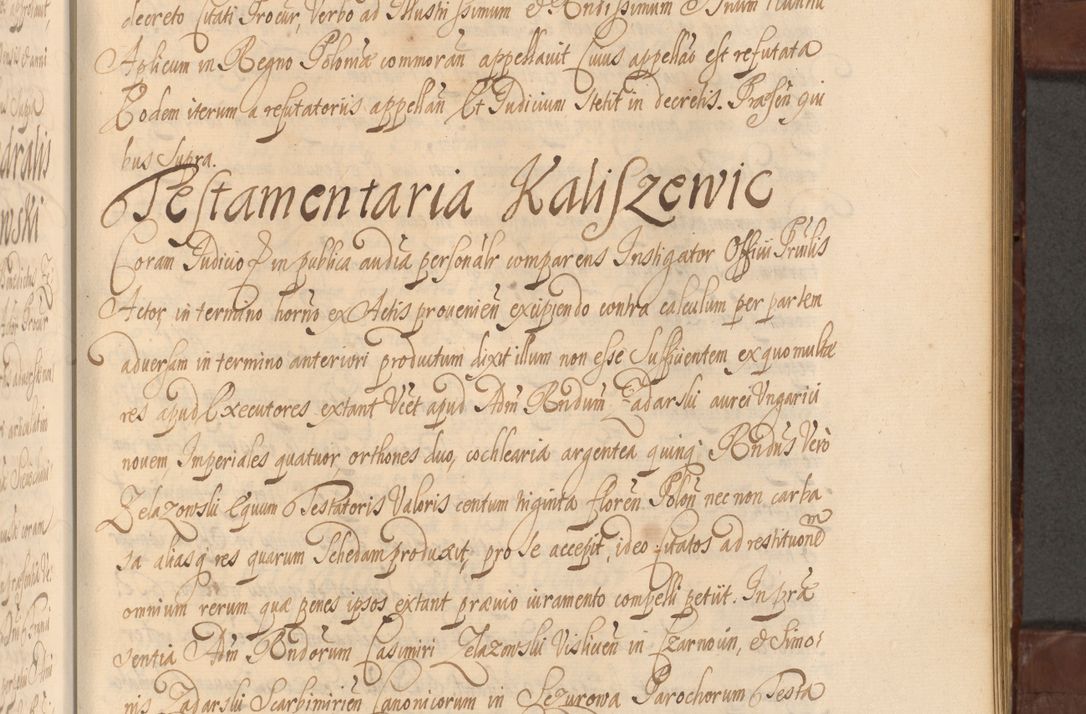 decreto Citati Procur, Verbo ad Illustrissimum & Rndissimum Dnum Nuntiu
Aplicum in Regno Poloniæ commorañ appellavit Cuius appellao est refutata
Eodem iterum a refutatoriis appellañ Et Iudicium stetit in decretis. Præseñ qui
bus Supra.
Testamentaria Kaliszewic
Coram Iudicio & in publica audia personalr comparens Instigator Officii Prnlis
Actor, in termino horño ex Actis provenieñ excipiendo contra calculum per partem
adversam in termino anteriori productum dixit illum non esse Sufficientem ex quo multæ
res apud Executores extant Vcet apud Adm Rndum Zadarski aurei Vngarici
novem Imperiales quatuor orthones duo, cochlearia argentea quinq Rndus Vero
Zelazowski Equum Testatoris Valoris centum triginta floreñ Poloñ nec non carba
sa aliasq res quarum Schedam produxit, pro se accepit, ideo Citatos ad restitutionem
omnium rerum quæ penes ipsos extant prævio iuramento compelli petiit. In præ
sentia Adm Rndorum Casimiri Zelazowski Visliceñ in Czarnocin, & Simo-
nis Zadarski Scarbimirieñ Canonicorum in Sczurowa Parochorum Testa